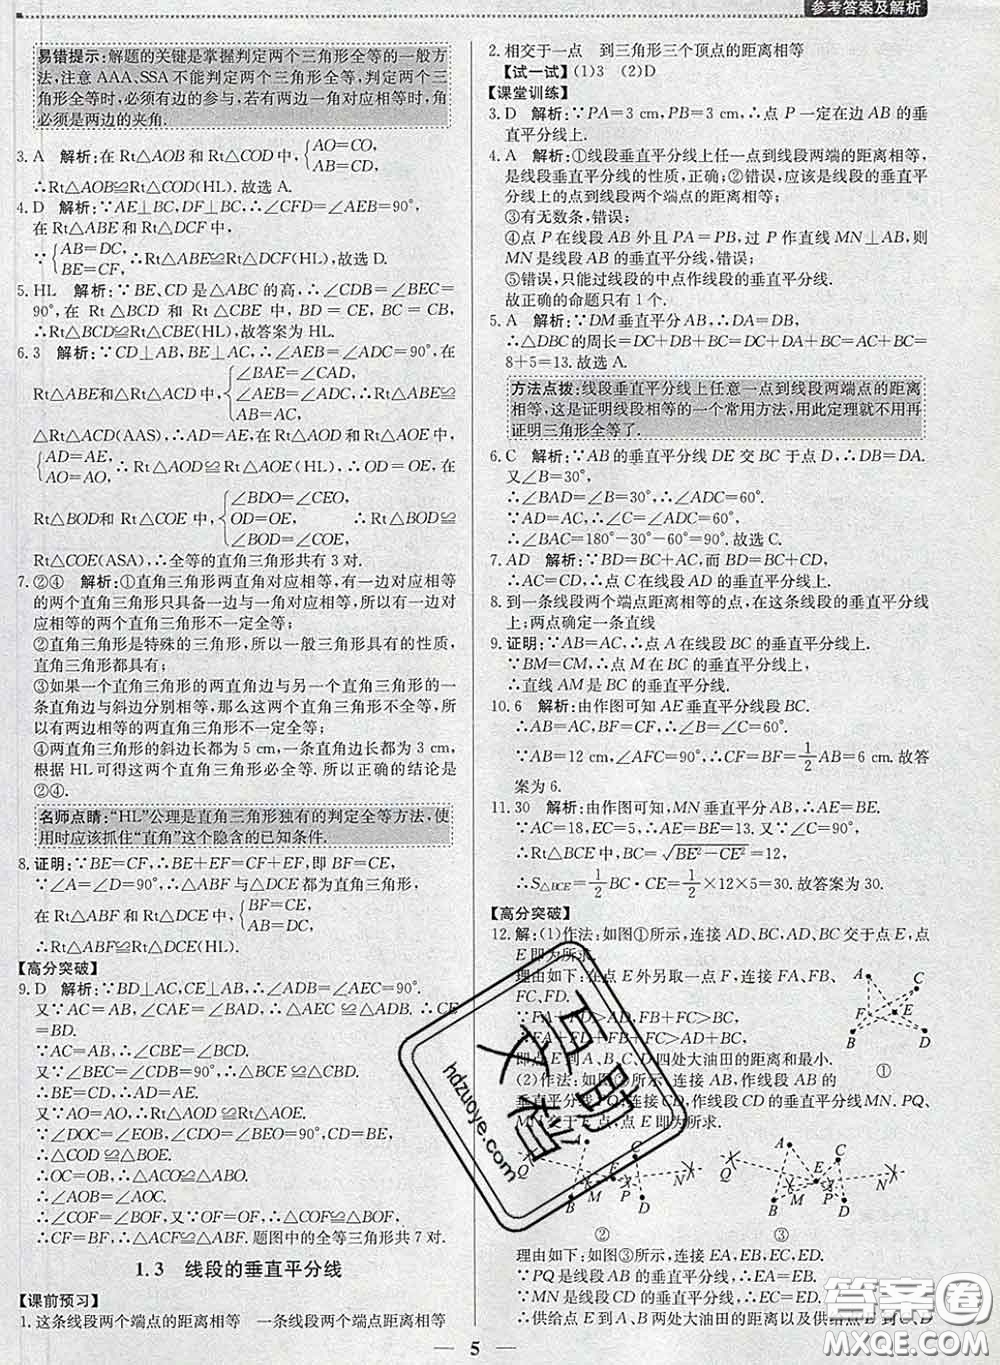 参考答案及解析
易错提示:解题的关键是掌握判定两个三角形全等的一般方
法,注意 AAA、SSA 不能判定两个三角形全等,判定两个三
角形全等时,必须有边的参与,若有两边一角对应相等时,角
必须是两边的夹角.
3. A 解析:在 Rt△AOB 和 Rt△COD 中,{AO=CO,
AB=CD,
∴Rt△AOB≌Rt△COD(HL).故选 A.
4. D 解析:∵AE⊥BC,DF⊥BC,∴∠CFD=∠AEB=90°,
在 Rt△ABE 和 Rt△DCF 中,
∵{AB=DC,
BE=CF,∴Rt△ABE≌Rt△DCF(HL),故选 D.
5. HL 解析:∵BE、CD 是△ABC 的高,∴∠CDB=∠BEC=
90°,在 Rt△BCD 和 Rt△CBE 中,BD=CE,BC=CB,
∴Rt△BCD≌Rt△CBE(HL),故答案为 HL.
6. 3 解析:∵CD⊥AB,BE⊥AC,∴∠AEB=∠ADC=90°,在
Rt△ABE 和 Rt△ACD 中,{∠BAE=∠CAD,
∠AEB=∠ADC,∴Rt
AB=AC,
△ABE≌
△ACD(AAS),∴AD=AE,在 Rt△AOD 和 Rt△AOE 中,
{AD=AE,
AO=AO,∴Rt△AOD≌Rt△AOE(HL),∴OD=OE,在
Rt△BOD和 Rt△COE 中,{∠BDO=∠CEO,
OD=OE,
∠BOD=∠COE,
∴Rt△BOD≌
Rt△COE(ASA).∴全等的直角三角形共有 3 对.
7. ②④ 解析:①直角三角形两直角对应相等,有一边相等
的两个直角三角形只具备一边与一角对应相等,所以有一边
相等的两个直角三角形不一定全等;
②直角三角形是特殊的三角形,所以一般三角形具有的性质,
直角三角形都具有;
③如果一个直角三角形的两直角边与另一个直角三角形的一
条直角边与斜边分别相等,那么这两个直角三角形不全等,所
以有两边相等的两直角三角形不一定全等;
④两直角三角形的斜边长都为 5 cm,一条直角边长都为 3 cm,
根据 HL 可得这两个直角三角形必全等.所以正确的结论是
②④.
名师点睛:“HL”公理是直角三角形独有的判定全等方法,使
用时应该抓住“直角”这个隐含的已知条件.
8. 证明:∵BE=CF,∴BE+EF=CF+EF,即 BF=CE,
∵∠A=∠D=90°,∴△ABF 与△DCE 都为直角三角形,
在 Rt△ABF 和 Rt△DCE 中,{BF=CE,
∴Rt△ABF≌Rt△DCE(HL).
【高分突破】
9. D 解析:∵BD⊥AC,CE⊥AB,∴∠ADB=∠AEC=90°.
又∵AC=AB,∠CAE=∠BAD,∴△AEC≌△ADB.∴CE
=BD.
∵AC=AB,∴∠CBE=∠BCD.
又∵∠BEC=∠CDB=90°,∴△BCE≌△CBD.
∴BE=CD,∴AD=AE.
又∵AO=AO,∴△AOD≌△AOE.
∵∠DOC=∠EOB,∠CDO=∠BEO=90°,
∴△COD≌△BOE.
∴OC=OB,∴△ACO≌△ABO.
∴∠AOB=∠AOC.
∴∠COF=∠BOF,又∵OF=OF,∴△COF≌△BOF.
∴CF=BF.∴△ACF≌△ABF.题图中的全等三角形共 7 对.
1.3 线段的垂直平分线
【课前预习】
1. 这条线段两个端点的距离相等 一条线段两个端点距离相等
2. 相交于一点 到三角形三个顶点的距离相等
【试一试】(1)3 (2)D
【课堂训练】
3. D 解析:∵PA=3 cm,PB=3 cm,∴点 P 一定在边 AB 的垂
直平分线上.
4. A 解析:①线段垂直平分线上任一点到线段两端的距离相等,
是线段垂直平分线的性质,正确;②错误,应该是线段的垂直平
分线上的点到线段两个端点的距离相等;
③有无数条,错误;
④点 P 在线段 AB 外且 PA=PB,过 P 作直线 MN⊥AB,则
MN 是线段 AB 的垂直平分线,错误;
⑤错误,只能过线段的中点作线段的垂直平分线.
故正确的命题只有 1 个.
5. A 解析:∵DM垂直平分 AB,∴DA=DB,
∴△DBC 的周长=DC+DB+BC=DC+DA+BC=AC+BC=
8+5=13.故选 A.
方法点拨:线段垂直平分线上任意一点到线段两端点的距离
相等,这是证明线段相等的一个常用方法,用此定理就不用再
证明三角形全等了.
6. C 解析:∵AB 的垂直平分线 DE 交 BC 于点 D,∴DB=DA.
又∠B=30°,
∴∠BAD=∠B=30°,∴∠ADC=60°.
又∵AD=AC,∴∠C=∠ADC=60°,
∴∠BAC=180°-30°-60°=90°.故选 C.
7. AD 解析:∵BD=BC+AC,而 BD=BC+CD,
∴AC=CD,∴点 C 在线段 AD 的垂直平分线上.
8. 到一条线段两个端点距离相等的点,在这条线段的垂直平分线
上;两点确定一条直线
9. 证明:∵AB=AC,∴点 A 在线段 BC 的垂直平分线上.
∵BM=CM,∴点 M 在 BC 的垂直平分线上,
∴直线 AM 是 BC 的垂直平分线.
10. 6 解析:由作图可知 AE垂直平分线段 BC.
∴AB=AC,BF=CF,∴∠B=∠C=60°.
∵AB=12 cm,∠AFC=90°,∴CF=BF=1/2 AB=6 cm.故答
案为 6.
11. 30 解析:由作图可知,MN 垂直平分 AB,∴AE=BE.
∵AC=18,CE=5,∴AE=BE=13.
∴Rt△BCE 中,BC=√(BE²-CE²)=12,
∴S△BCE=1/2 BC·CE=1/2×12×5=30.故答案为 30.
【高分突破】
12. 解:(1)作法:如图①所示,连接 AD、BC,AD、BC 交于点 E,点
E 即为所求.
理由如下:在点 E 外另取一点 F,连接 FA、FB、
FC、FD.
∵FA+FD>AD,FB+FC>BC,
∴FA+FD+FB+FC>AD+BC,
即点 E 到 A、B、C、D 四处大油田的距离和最小.
(2)作法:如图②所示,连接 AB,作线段 AB 的
垂直平分线 PQ;连接 CD,作线段 CD 的垂直平分线 MN.PQ、
MN 交于 E 点,点 E 即为所求.
A C F E B D ①
A C Q N E B M P D ②
A C Q N E M P B D ③
理由如下:如图③所示,连接 EA、EB、EC、ED.
∵PQ 是线段 AB 的垂直平分线,∴EA=EB.
∵MN 是线段 CD 的垂直平分线,∴EC=ED.
∴供给点 E 到 A、B 两处大油田的距离以及供给点 E 到 C、D
5
百文助智
hdzuoye.com
答案圈
MXQE.COM